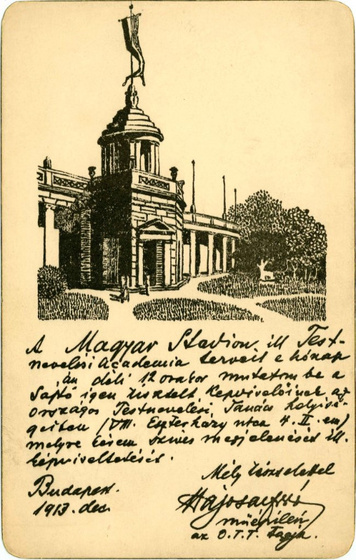 A Magyar Stadion ill. Test-
nevelési Academia terveit e hónap
án déli 12 órakor mutatom be a
Sajtó igen tisztelt Képviselőinek az
országos Testnevelési Tanács helyisé-
geiben (VIII. Eszterházy utca 4. II. em)
melyre kérem szives megjelenését ill.
képviseltetését.
Mély tisztelettel
Budapest.
1913. dec.
Hajós Alfréd
műépítész
az O.T.T. tagja.